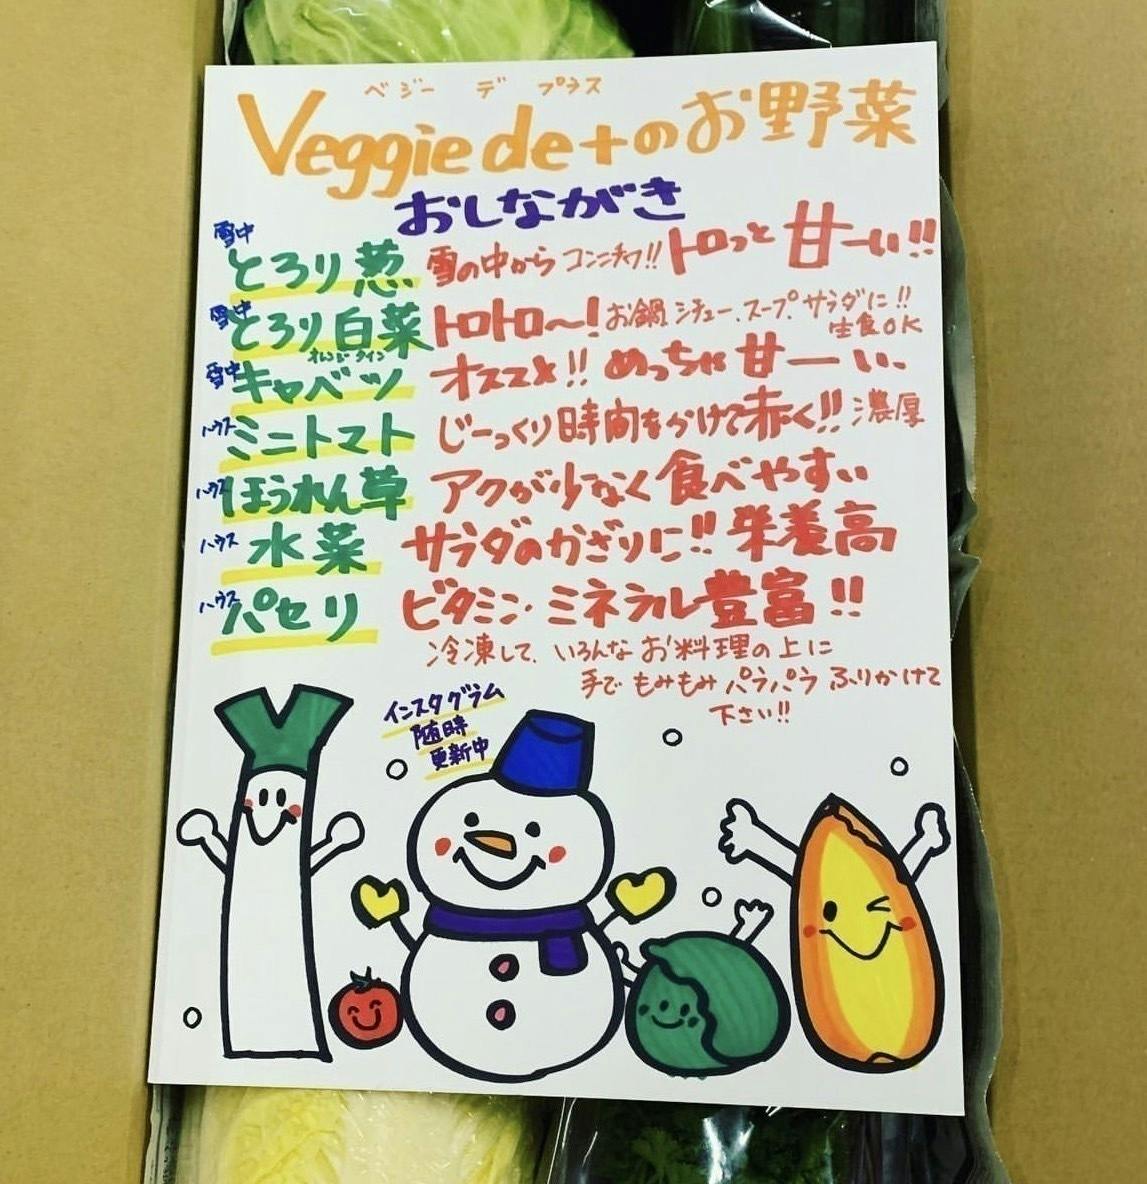 ベジー デ プラス
Veggie de+のお野菜
おしながき
雪中
とろり葱 雪の中からコンニチワ!! トロっと甘ーい!!
雪中
とろり白菜 トロトロ〜! お鍋 シチュー、スープ、サラダに!!
生食OK
オレンジクイン
雪中 キャベツ オススメ!! めっちゃ甘ーい、
ハウス ミニトマト じーっくり時間をかけて赤く!! 濃厚
ハウス ほうれん草 アクが少なく食べやすい
ハウス 水菜 サラダのかざりに!! 栄養高
ハウス パセリ ビタミン・ミネラル豊富!!
冷凍して、いろんなお料理の上に
手でもみもみパラパラふりかけて
下さい!!
インスタグラム
随時
更新中